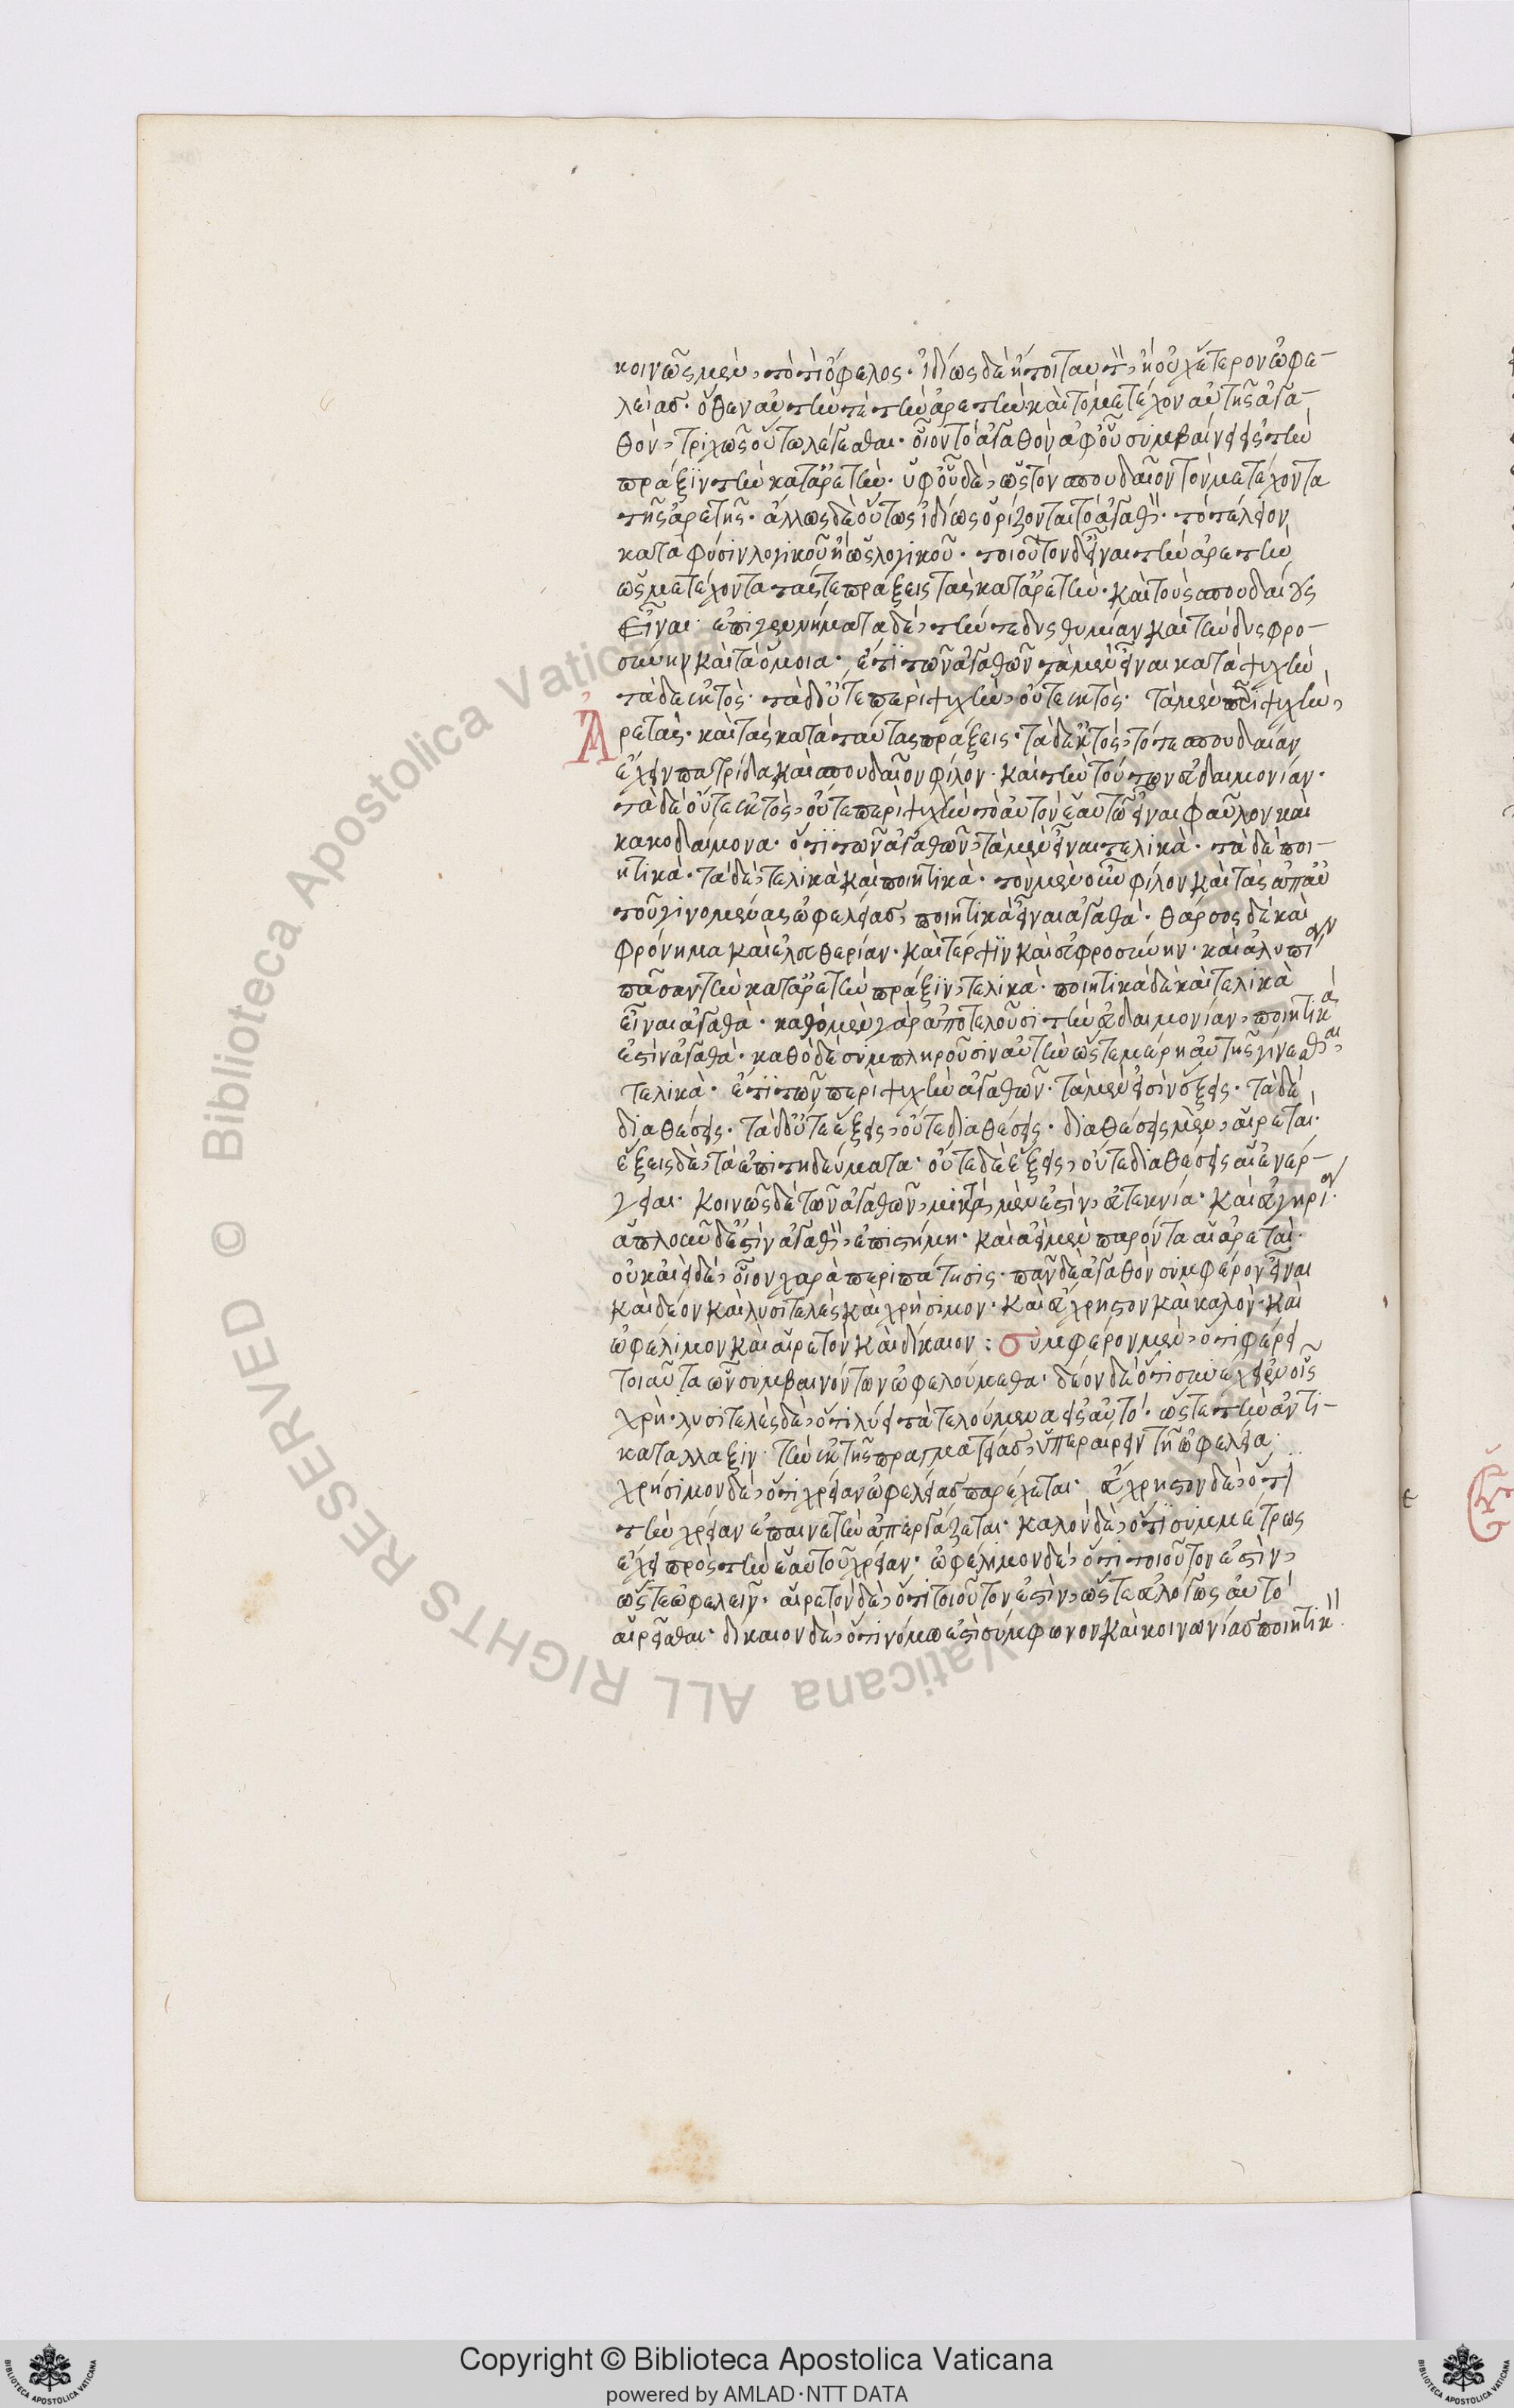 κοινῶς μὲν, τὸ τὶ ὄφελος· ἰδίως δὲ ἤτοι ταυτὸν, ἢ οὐχ ἕτερον ὠφε-
λείας· ὅθεν αὐτήν τε τὴν ἀρετὴν καὶ τὸ μετέχον αὐτῆς ἀγα-
θὸν, τριχῶς οὕτω λέγεσθαι· οἷον τὸ ἀγαθὸν ἀφ' οὗ συμβαίνει
πράξιν τὴν κατ' ἀρετήν· ὑφ' οὗ δὲ, ὡς τὸν σπουδαῖον τὸν μετέχοντα
τῆς ἀρετῆς· ἄλλως δὲ οὕτως ἰδίως ὁρίζονται τὸ ἀγαθὸν· τὸ τέλειον
κατὰ φύσιν λογικοῦ ἢ ὡς λογικοῦ· τοιοῦτον δ' εἶναι τὴν ἀρετὴν
ὡς μετέχοντα τάς τε πράξεις τὰς κατ' ἀρετήν· καὶ τοὺς σπουδαίους
εἶναι· ἐπιγεννήματα δὲ, τήν τε δυσθυμίαν καὶ τὴν δυσφρο-
σύνην καὶ τὰ ὅμοια· ἔτι τῶν ἀγαθῶν τὰ μὲν εἶναι κατὰ ψυχὴν
τὰ δὲ ἐκτὸς· τὰ δ' οὔτε περὶ ψυχὴν, οὔτε ἐκτὸς· τὰ μὲν περὶ ψυχὴν,
Ἀρετὰς· καὶ τὰς κατὰ ταύτας πράξεις· τὰ δ' ἐκτὸς, τό τε σπουδαίαν
ἔχειν πατρίδα καὶ σπουδαῖον φίλον· καὶ τὴν τούτων εὐδαιμονίαν·
τὰ δὲ οὔτε ἐκτὸς, οὔτε περὶ ψυχὴν τὸ αὐτὸν ἑαυτῷ εἶναι φαῦλον καὶ
κακοδαίμονα· ὅτι τῶν ἀγαθῶν, τὰ μὲν εἶναι τελικὰ· τὰ δὲ ποι-
ητικὰ· τὰ δὲ, τελικὰ καὶ ποιητικὰ· τὸν μὲν οὖν φίλον καὶ τὰς ἀπ' αὐ
τοῦ γινομένας ὠφελείας, ποιητικὰ εἶναι ἀγαθὰ· θάρσος δὲ καὶ
φρόνημα καὶ ἐλευθερίαν· καὶ τέρψιν καὶ εὐφροσύνην· καὶ ἀλυπίαν
πᾶσαν τὴν κατ' ἀρετὴν πράξιν, τελικὰ· ποιητικὰ δὲ καὶ τελικὰ
εἶναι ἀγαθὰ· καθὸ μὲν γὰρ ἀποτελοῦσι τὴν εὐδαιμονίαν, ποιητικά
ἐστὶν ἀγαθὰ· καθὸ δὲ συμπληροῦσιν αὐτὴν ὥστε μέρη αὐτῆς γίνεσθαι,
τελικὰ· ἔτι τῶν περὶ ψυχὴν ἀγαθῶν· τὰ μὲν εἰσὶν ἕξεις· τὰ δὲ
διαθέσεις· τὰ δ' οὔτε ἕξεις, οὔτε διαθέσεις· διαθέσεις μὲν, αἱ ἀρεταὶ·
ἕξεις δὲ, τὰ ἐπιτηδεύματα· οὔτε δὲ ἕξεις, οὔτε διαθέσεις αἱ ἐνέρ-
γειαι· κοινῶς δὲ τῶν ἀγαθῶν, μικτὰ μὲν ἐστὶν, εὐτεκνία· καὶ εὐγηρία·
ἁπλοῦν δ' ἐστὶν ἀγαθὸν, ἐπιστήμη· καὶ ἀεὶ μὲν παρόντα αἱ ἀρεταὶ·
οὐκ ἀεὶ δὲ, οἷον χαρὰ περιπάτησις· πᾶν δὲ ἀγαθὸν συμφέρον εἶναι
καὶ δέον καὶ λυσιτελὲς καὶ χρήσιμον· καὶ εὔχρηστον καὶ καλὸν· καὶ
ὠφέλιμον καὶ αἱρετὸν καὶ δίκαιον : συμφέρον μὲν, ὅτι φέρει
τοιαῦτα ὧν συμβαινόντων ὠφελούμεθα· δέον δὲ ὅτι συνέχει ἐν οἷς
χρὴ· λυσιτελὲς δὲ, ὅτι λύει τὰ τελούμενα εἰς αὐτό· ὥστε τὴν ἀντι-
κατάλλαξιν τὴν ἐκ τῆς πραγματείας, ὑπεραίρειν τῇ ὠφελείᾳ·
χρήσιμον δὲ, ὅτι χρείαν ὠφελείας παρέχεται· εὔχρηστον δὲ, ὅτι
τὴν χρείαν ἐπαινετὴν ἀπεργάζεται· καλὸν δὲ, ὅτι συμμέτρως
ἔχει πρὸς τὴν ἑαυτοῦ χρείαν· ὠφέλιμον δὲ, ὅτι τοιοῦτον ἐστὶν,
ὥστε ὠφελεῖν· αἱρετὸν δὲ, ὅτι τοιοῦτον ἐστὶν, ὥστε εὐλόγως αὐτὸ
αἱρεῖσθαι· δίκαιον δὲ, ὅτι νόμῳ ἐστὶ σύμφωνον καὶ κοινωνίας ποιητικὸν·
Copyright © Biblioteca Apostolica Vaticana
powered by AMLAD·NTT DATA